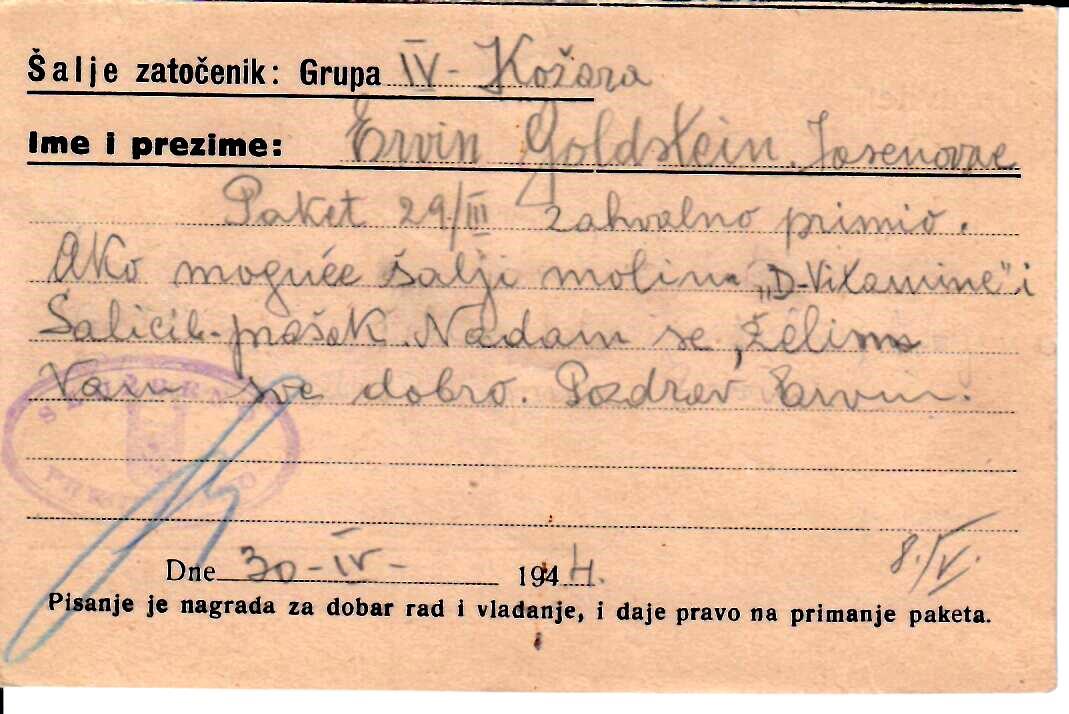 Šalje zatočenik: Grupa IV - Kožara
Ime i prezime: Ervin Goldstein, Jasenovac
Paket 29/III zahvalno primio.
Ako moguće šalji molim „D-Vitamine" i
Salicil-prašak. Nadam se, želim
Vam sve dobro. Pozdrav Ervin.
SLUŽBENO
Dne 30-IV- 1944.
8./V.
Pisanje je nagrada za dobar rad i vladanje, i daje pravo na primanje paketa.